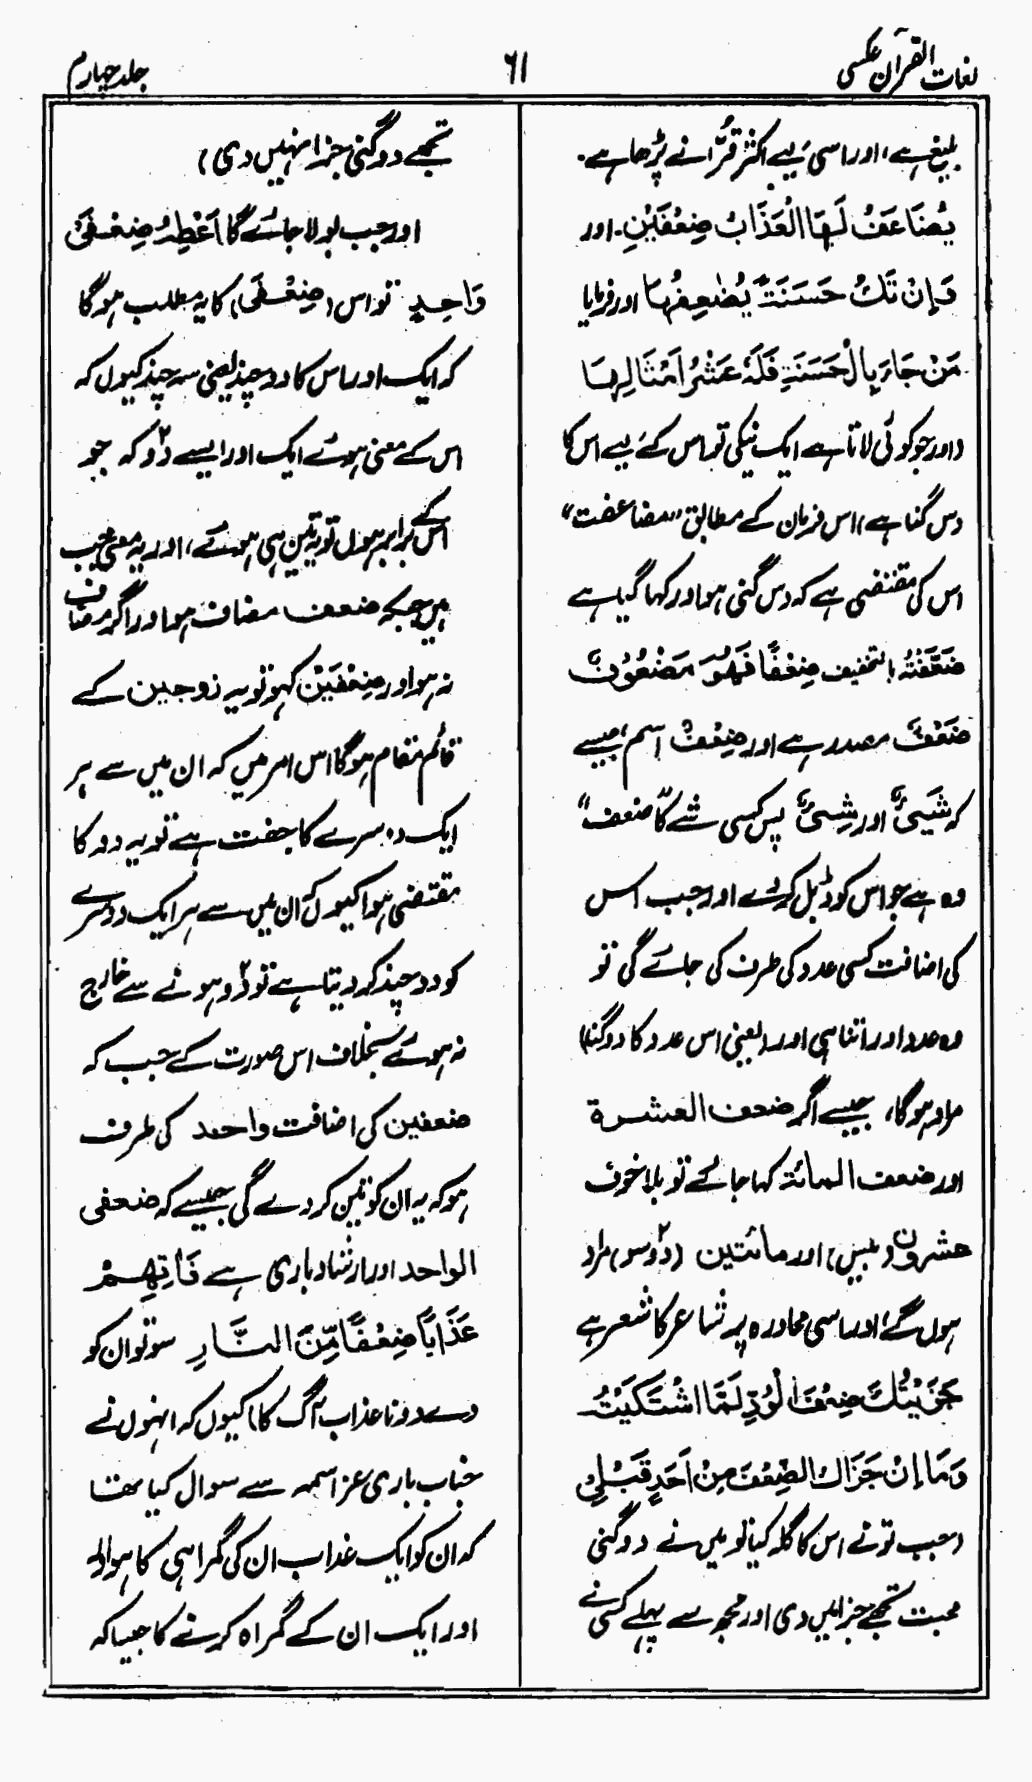 لغات القرآن عکسی
۶۱
جلد چہارم
بلیغ ہے، اور اسی لیے اکثر قُرّا نے پڑھا ہے۔
یُضَاعَفُ لَہَا الْعَذَابُ ضِعْفَیْنِ۔ اور
وَاِنْ تَكُ حَسَنَۃً یُضٰعِفْہَا اور فرمایا
مَنْ جَاءَ بِالْحَسَنَۃِ فَلَہٗ عَشْرُ اَمْثَالِہَا
(اور جو کوئی لاتا ہے ایک نیکی تو اس کے لیے اس کا
دس گنا ہے) اس فرمان کے مطابق "مضاعفت"
اس کی مقتضی ہے کہ دس گنی ہو اور کہا گیا ہے
ضَعَفْتُہٗ بالتخفیف ضِعْفًا فَہُوَ مَضْعُوْفٌ
ضَعْفٌ مصدر ہے اور ضِعْفٌ اسم، جیسے
کہ شَیْئٌ اور شِیْئٌ پس کسی شے کا "ضعف"
وہ ہے جو اس کو ڈبل کر دے اور جب اس
کی اضافت کسی عدد کی طرف کی جائے گی تو
وہ عدد اور اتنا ہی اور (یعنی اس عدد کا دوگنا)
مراد ہوگا، جیسے اگر ضعف العشرۃ
اور ضعف المائۃ کہا جائے تو بلا خوف
عشرون (بیس) اور مائتین (دو سو) مراد
ہوں گے اور اسی محاورہ پر شاعر کا شعر ہے
جَزَیْتُكَ ضِعْفَ الْوُدِّ لَمَّا اشْتَكَیْتُہٗ
وَمَا اِنْ جَزَاكَ الضِّعْفَ مِنْ اَحَدٍ قَبْلِیْ
(جب تو نے اس کا گلہ کیا تو میں نے دوگنی
محبت تجھے جزا میں دی اور مجھ سے پہلے کسی نے
تجھے دوگنی جزا نہیں دی)
اور جب بولا جائے گا اَعْطِہٖ ضِعْفَیْ
وَاحِدٍ تو اس (ضِعْفَیْ) کا یہ مطلب ہوگا
کہ ایک اور اس کا دوچند یعنی سہ چند کیوں کہ
اس کے معنی ہوئے ایک اور ایسے دو کہ جو
اس کے برابر ہوں تو یہ تین ہی ہوئے، اور یہ معنی جب
ہیں جبکہ ضعف مضاف ہو اور اگر مضاف
نہ ہو اور ضِعْفَیْنْ کہو تو یہ زوجین کے
قائم مقام ہوگا اس امر میں کہ ان میں سے ہر
ایک دوسرے کا جفت ہے تو یہ دو کا
مقتضی ہوا کیوں کہ ان میں سے ہر ایک دوسرے
کو دوچند کر دیتا ہے تو دو ہونے سے خارج
نہ ہوئے بخلاف اس صورت کے جب کہ
ضعفین کی اضافت واحد کی طرف
ہو کہ یہ ان کو تین کر دے گی جیسے کہ ضعفی
الواحد اور ارشاد باری ہے فَاٰتِہِمْ
عَذَابًا ضِعْفًا مِّنَ النَّارِ سو تو ان کو
دے دونا عذاب آگ کا) کیوں کہ انہوں نے
جناب باری عز اسمہ سے سوال کیا تھا
کہ ان کو ایک عذاب ان کی گمراہی کا ہو اور
اور ایک ان کے گمراہ کرنے کا جیسا کہ